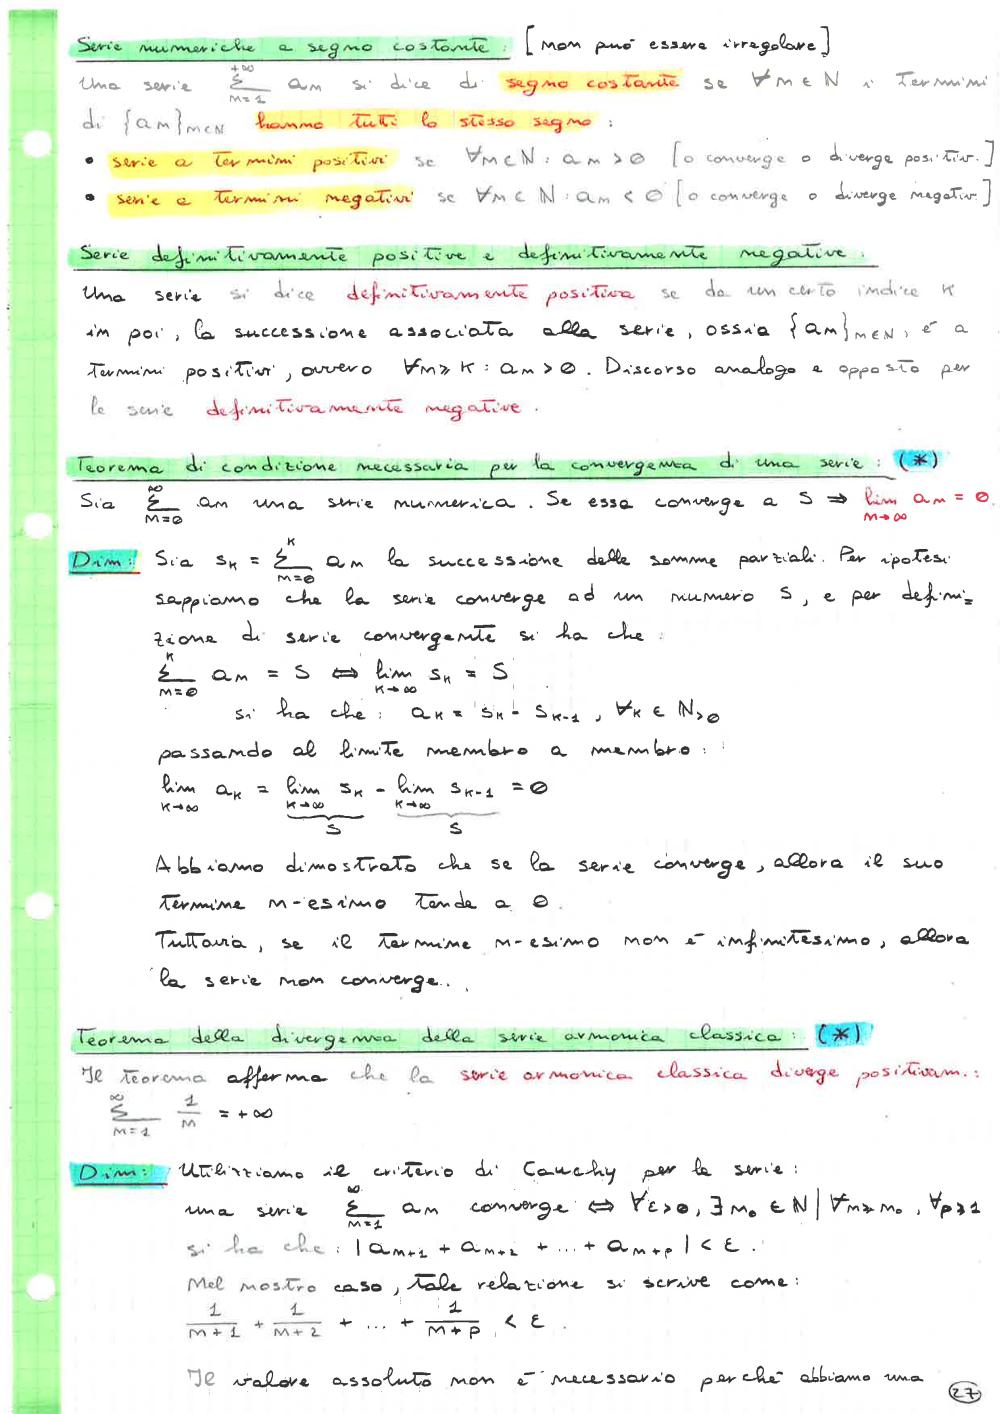 Serie numeriche a segno costante : [non può essere irregolare]
Una serie \sum_{n=1}^{+∞} an si dice di segno costante se ∀n∈N i termini
di {an}n∈N hanno tutti lo stesso segno :
• serie a termini positivi se ∀n∈N : an > 0 [o converge o diverge positiv.]
• serie a termini negativi se ∀n∈N : an < 0 [o converge o diverge negativ.]
Serie definitivamente positive e definitivamente negative :
Una serie si dice definitivamente positiva se da un certo indice K
in poi, la successione associata alla serie, ossia {an}n∈N, è a
termini positivi, ovvero ∀n≥K : an > 0. Discorso analogo e opposto per
le serie definitivamente negative.
Teorema di condizione necessaria per la convergenza di una serie : (*)
Sia \sum_{n=0}^{∞} an una serie numerica. Se essa converge a S ⇒ lim_{n→∞} an = 0
Dim: Sia sk = \sum_{n=0}^{K} an la successione delle somme parziali. Per ipotesi
sappiamo che la serie converge ad un numero S, e per defini=
zione di serie convergente si ha che :
\sum_{n=0}^{K} an = S ⇔ lim_{K→∞} sk = S
si ha che : ak = sk - sk-1 , ∀k ∈ N>0
passando al limite membro a membro :
lim_{K→∞} ak = lim_{K→∞} sk - lim_{K→∞} sk-1 = 0
S S
Abbiamo dimostrato che se la serie converge, allora il suo
termine n-esimo tende a 0.
Tuttavia, se il termine n-esimo non è infinitesimo, allora
la serie non converge.
Teorema della divergenza della serie armonica classica : (*)
Il teorema afferma che la serie armonica classica diverge positivam. :
\sum_{n=1}^{∞} 1/n = +∞
Dim: Utilizziamo il criterio di Cauchy per le serie :
una serie \sum_{n=1}^{∞} an converge ⇔ ∀ε>0, ∃n₀ ∈ N | ∀n≥n₀, ∀p≥1
si ha che : |an+1 + an+2 + ... + an+p| < ε.
Nel nostro caso, tale relazione si scrive come :
1/(n+1) + 1/(n+2) + ... + 1/(n+p) < ε.
Il valore assoluto non è necessario perché abbiamo una
27